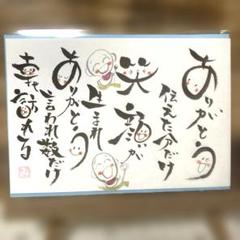 ありがとう
伝えた分だけ
笑顔が
生まれ
ありがとう
言われた数だけ
幸せ訪れる